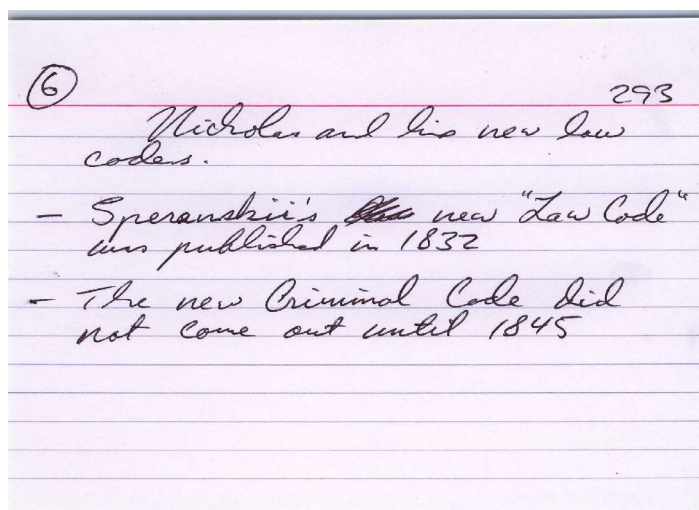 6 293
Nicholas and his new law
codes.
- Speranskii's new "Law Code"
was published in 1832
- The new Criminal Code did
not come out until 1845